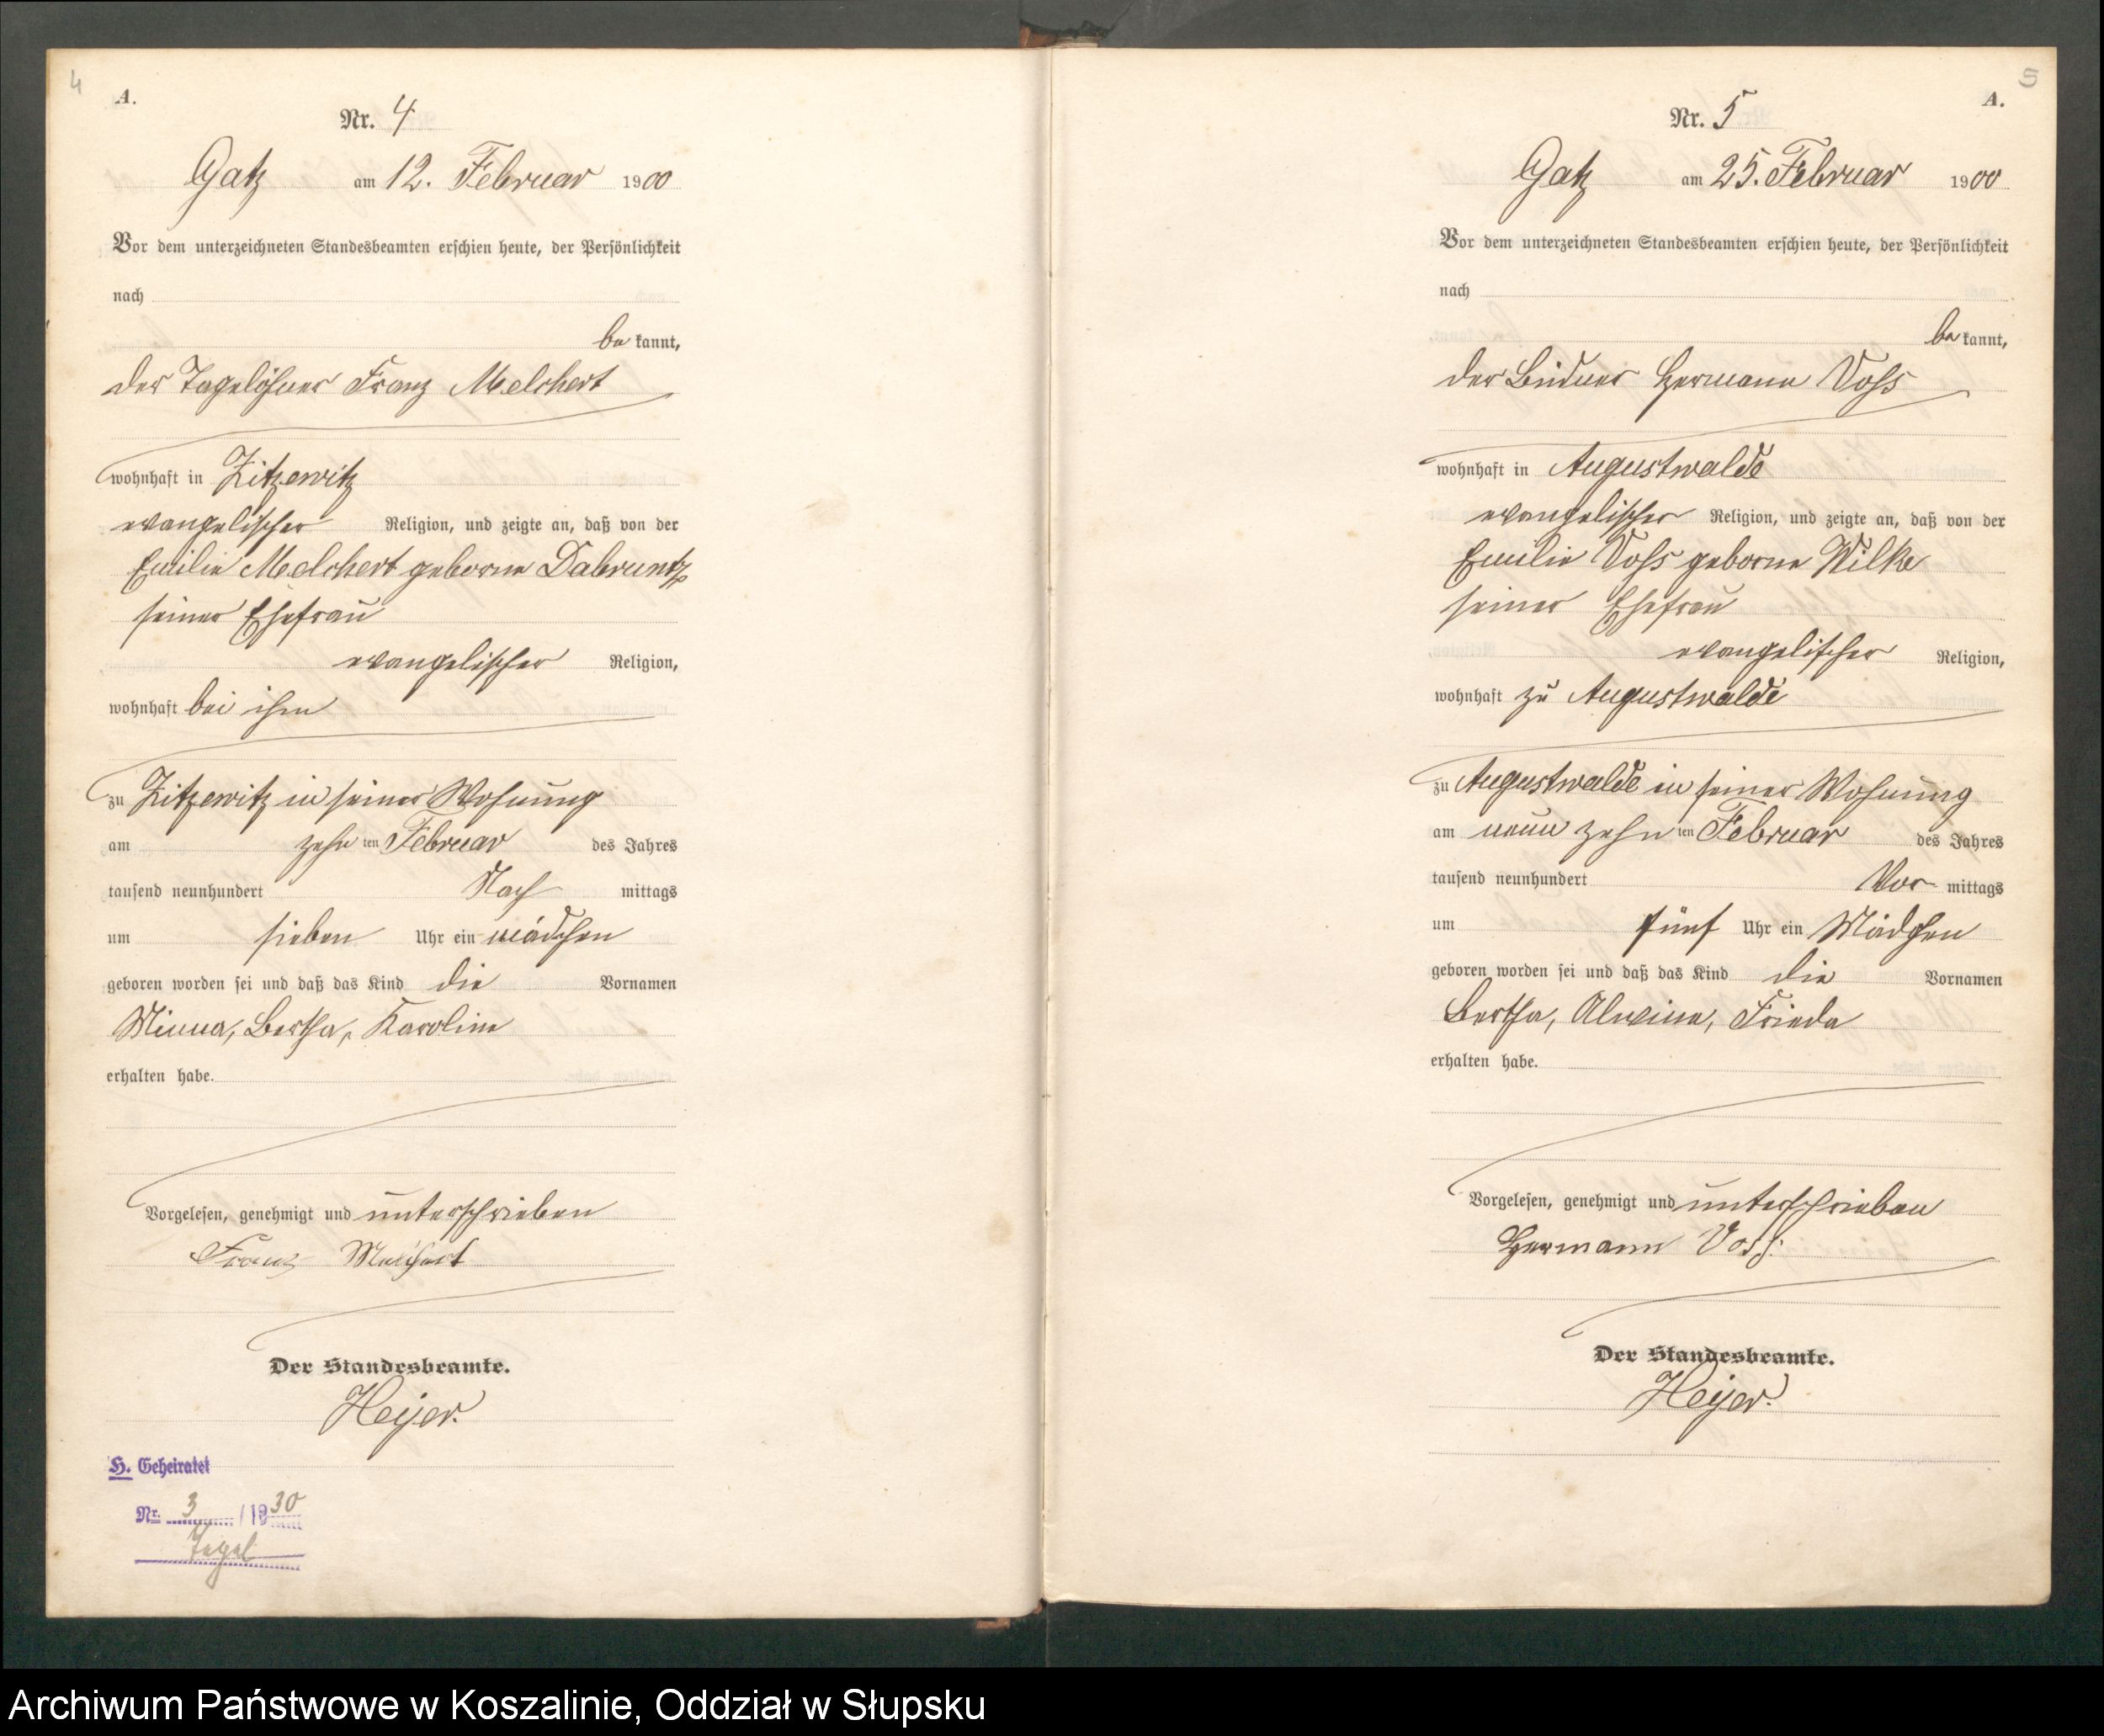 4
A.
Nr. 4
Gatz am 12. Februar 1900
Vor dem unterzeichneten Standesbeamten erschien heute, der Persönlichkeit
nach
be kannt,
der Tagelöhner Franz Melchert
wohnhaft in Zitzewitz
evangelischer Religion, und zeigte an, daß von der
Emilie Melchert geborne
seiner Ehefrau
evangelischer Religion,
wohnhaft bei ihm
zu Zitzewitz in seiner Wohnung
am zehn ten Februar des Jahres
tausend neunhundert Nach mittags
um sieben Uhr ein mädchen
geboren worden sei und daß das Kind die Vornamen
Minna, Bertha, Karoline
erhalten habe.
Vorgelesen, genehmigt und unterschrieben
Franz Melchert
Der Standesbeamte.
Heyer.
H. Geheiratet
Nr. 3 / 1930
5
A.
Nr. 5
Gatz am 25. Februar 1900
Vor dem unterzeichneten Standesbeamten erschien heute, der Persönlichkeit
nach
be kannt,
der Büdner Hermann Voss
wohnhaft in Augustwalde
evangelischer Religion, und zeigte an, daß von der
Emilie Voss geborne Wilke
seiner Ehefrau
evangelischer Religion,
wohnhaft zu Augustwalde
zu Augustwalde in seiner Wohnung
am neun zehn ten Februar des Jahres
tausend neunhundert Vor mittags
um fünf Uhr ein Mädchen
geboren worden sei und daß das Kind die Vornamen
Bertha, Alwine, Frieda
erhalten habe.
Vorgelesen, genehmigt und unterschrieben
Hermann Voss.
Der Standesbeamte.
Heyer.
Archiwum Państwowe w Koszalinie, Oddział w Słupsku